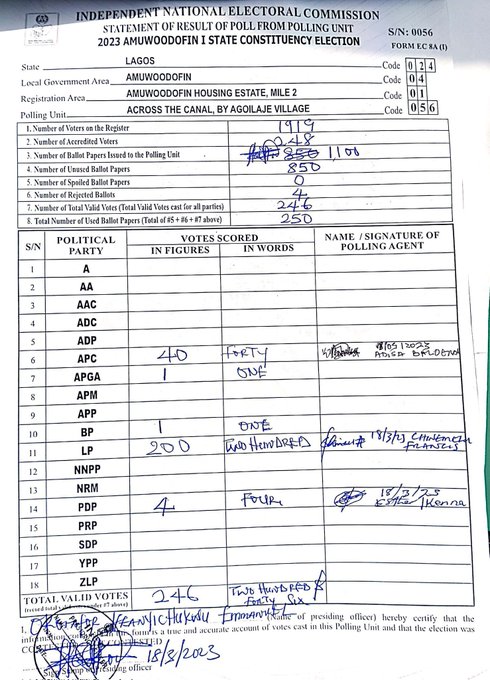 INDEPENDENT NATIONAL ELECTORAL COMMISSION
STATEMENT OF RESULT OF POLL FROM POLLING UNIT
S/N: 0056
2023 AMUWOODOFIN I STATE CONSTITUENCY ELECTION
FORM EC 8A (I)
State LAGOS Code 0 2 4
Local Government Area AMUWOODOFIN Code 0 4
Registration Area AMUWOODOFIN HOUSING ESTATE, MILE 2 Code 0 1
Polling Unit ACROSS THE CANAL, BY AGOILAJE VILLAGE Code 0 5 6
1. Number of Voters on the Register 1919
2. Number of Accredited Voters 248
3. Number of Ballot Papers Issued to the Polling Unit 850 1100
4. Number of Unused Ballot Papers 850
5. Number of Spoiled Ballot Papers 0
6. Number of Rejected Ballots 4
7. Number of Total Valid Votes (Total Valid Votes cast for all parties) 246
8. Total Number of Used Ballot Papers (Total of #5 + #6 + #7 above) 250
S/N POLITICAL PARTY VOTES SCORED NAME / SIGNATURE OF POLLING AGENT
IN FIGURES IN WORDS
1 A
2 AA
3 AAC
4 ADC
5 ADP
6 APC 40 FORTY
7 APGA 1 ONE
8 APM
9 APP
10 BP 1 ONE
11 LP 200 TWO HUNDRED 18/3/23 FRANCIS
12 NNPP
13 NRM
14 PDP 4 FOUR 18/3/23
15 PRP
16 SDP
17 YPP
18 ZLP
TOTAL VALID VOTES 246 TWO HUNDRED & FORTY SIX
IFEANYICHUKWU EMMANUEL (Name of presiding officer) hereby certify that the
form is a true and accurate account of votes cast in this Polling Unit and that the election was
CONTESTED
18/3/2023
officer